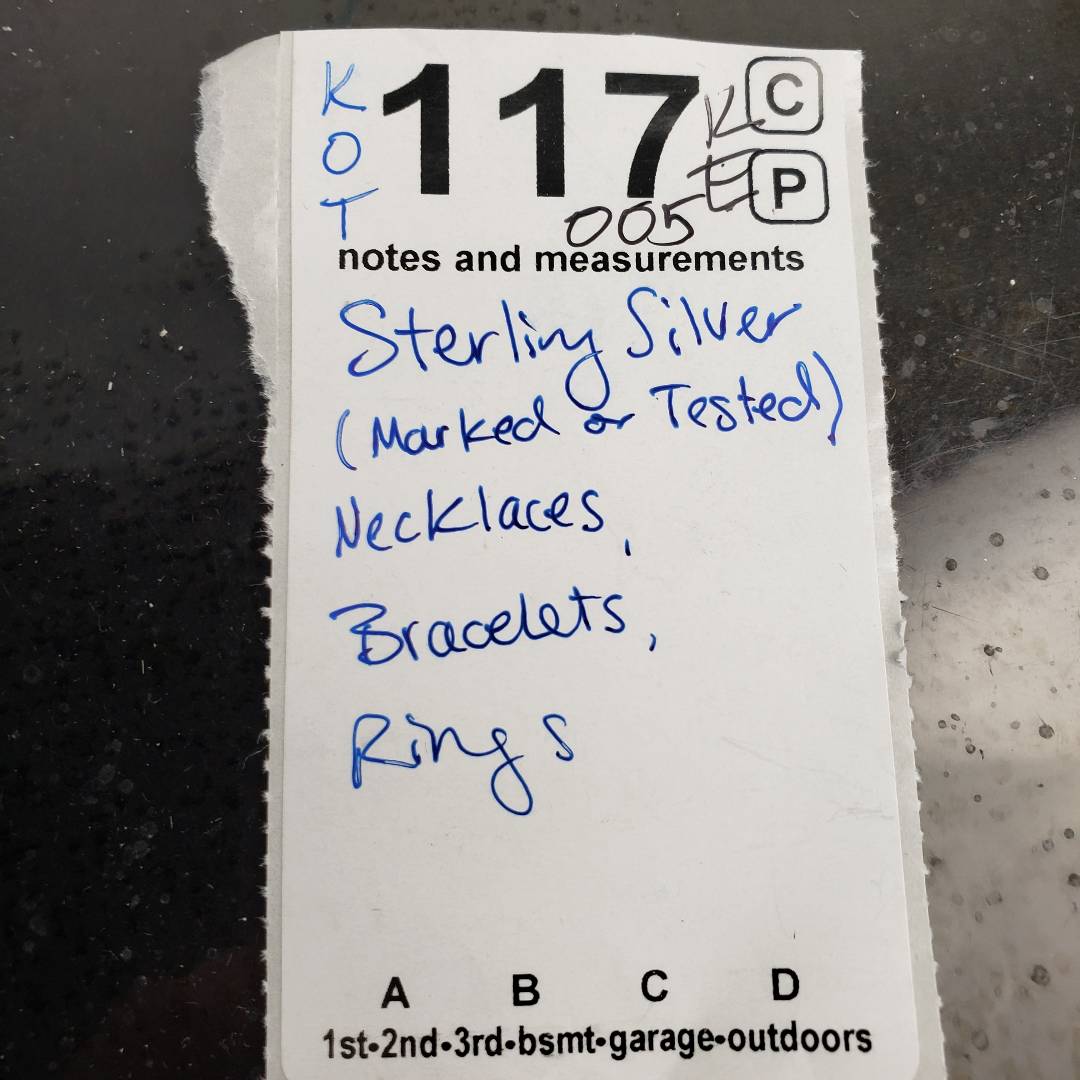 K
O
T
117
K C
E P
005
notes and measurements
Sterling Silver
(Marked or Tested)
Necklaces,
Bracelets,
Rings
A B C D
1st•2nd•3rd•bsmt•garage•outdoors